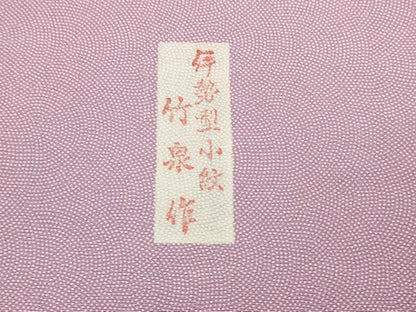 伊勢型小紋
竹泉作